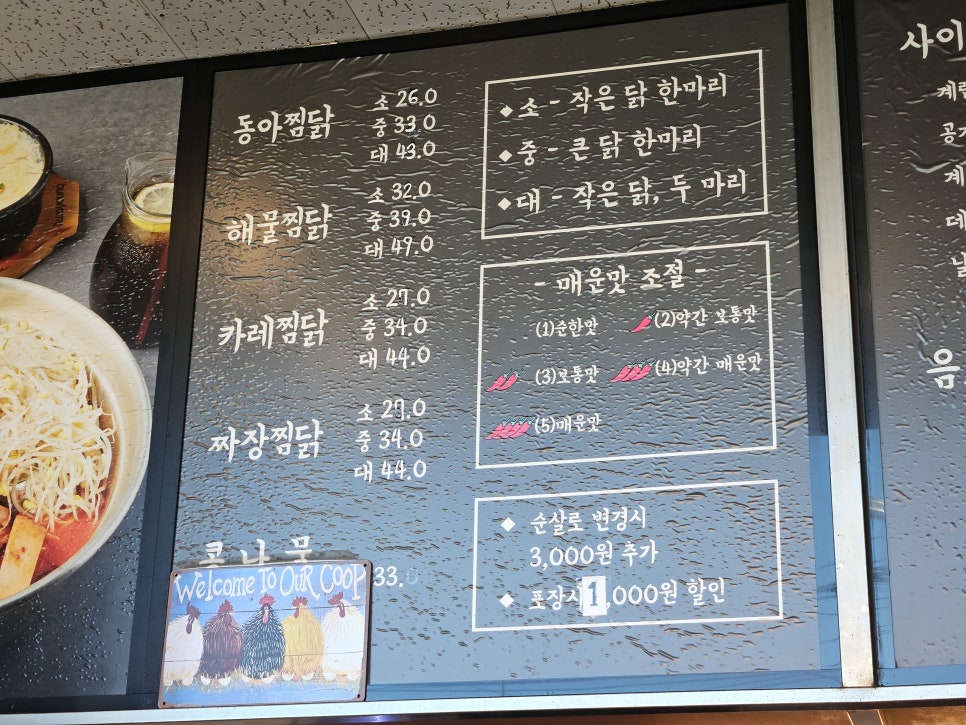 동아찜닭
소 26.0
중 33.0
대 43.0
해물찜닭
소 32.0
중 39.0
대 49.0
카레찜닭
소 27.0
중 34.0
대 44.0
짜장찜닭
소 27.0
중 34.0
대 44.0
콩나물
33.0
Welcome To Our Coop
◆ 소 - 작은 닭 한마리
◆ 중 - 큰 닭 한마리
◆ 대 - 작은 닭, 두 마리
- 매운맛 조절 -
(1)순한맛
(2)약간 보통맛
(3)보통맛
(4)약간 매운맛
(5)매운맛
◆ 순살로 변경시
3,000원 추가
◆ 포장시 1,000원 할인
사이
계란
공기
계
데
날
음